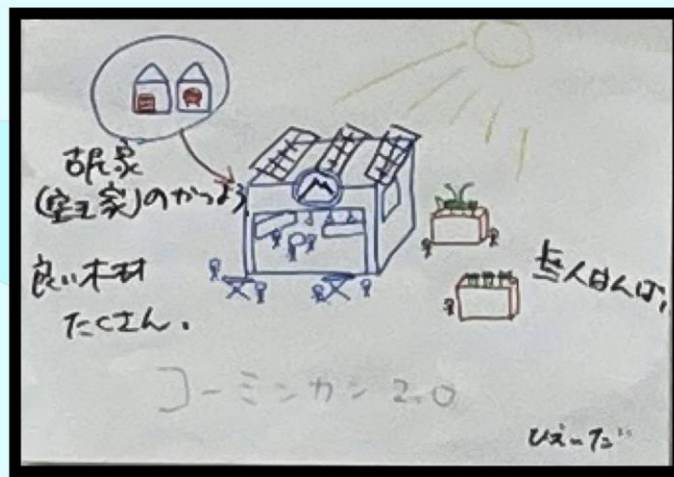 古民家
(空き家)のかつよう
良い木材
たくさん.
無人はんばい
コーミンカン2.0